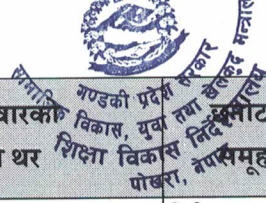 गण्डकी प्रदेश सरकार
सामाजिक विकास, युवा तथा खेलकुद मन्त्रालय
शिक्षा विकास निर्देशनालय
पोखरा, नेपाल
थर
समूह